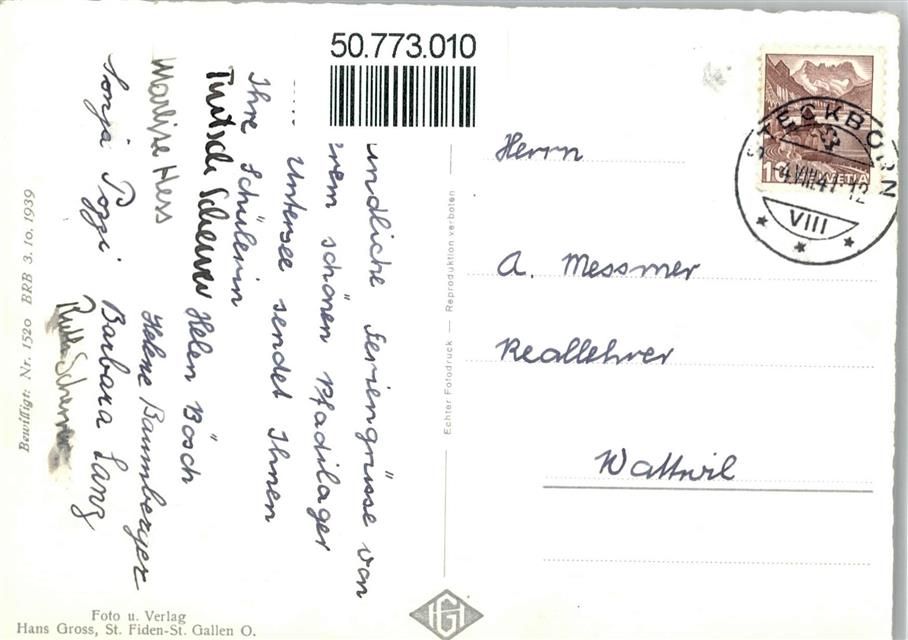 50.773.010
undliche Feriengrüsse von
rem schönen Pfadilager
Untersee sendet Ihnen
Ihre Schülerin
Helen Bösch
Trutsch Scherrer
Marlise Hess
Helene Bamberger
Sonja Pozzi
Barbara Lang
Ruth Scherrer
Herrn
A. Messmer
Reallehrer
Wattwil
STECKBORN
-4.VIII.47-12
VIII
10 HELVETIA
Echter Fotodruck — Reproduktion verboten
Bewilligt: Nr. 1520 BRB 3. 10. 1939
Foto u. Verlag
Hans Gross, St. Fiden-St. Gallen O.
HG